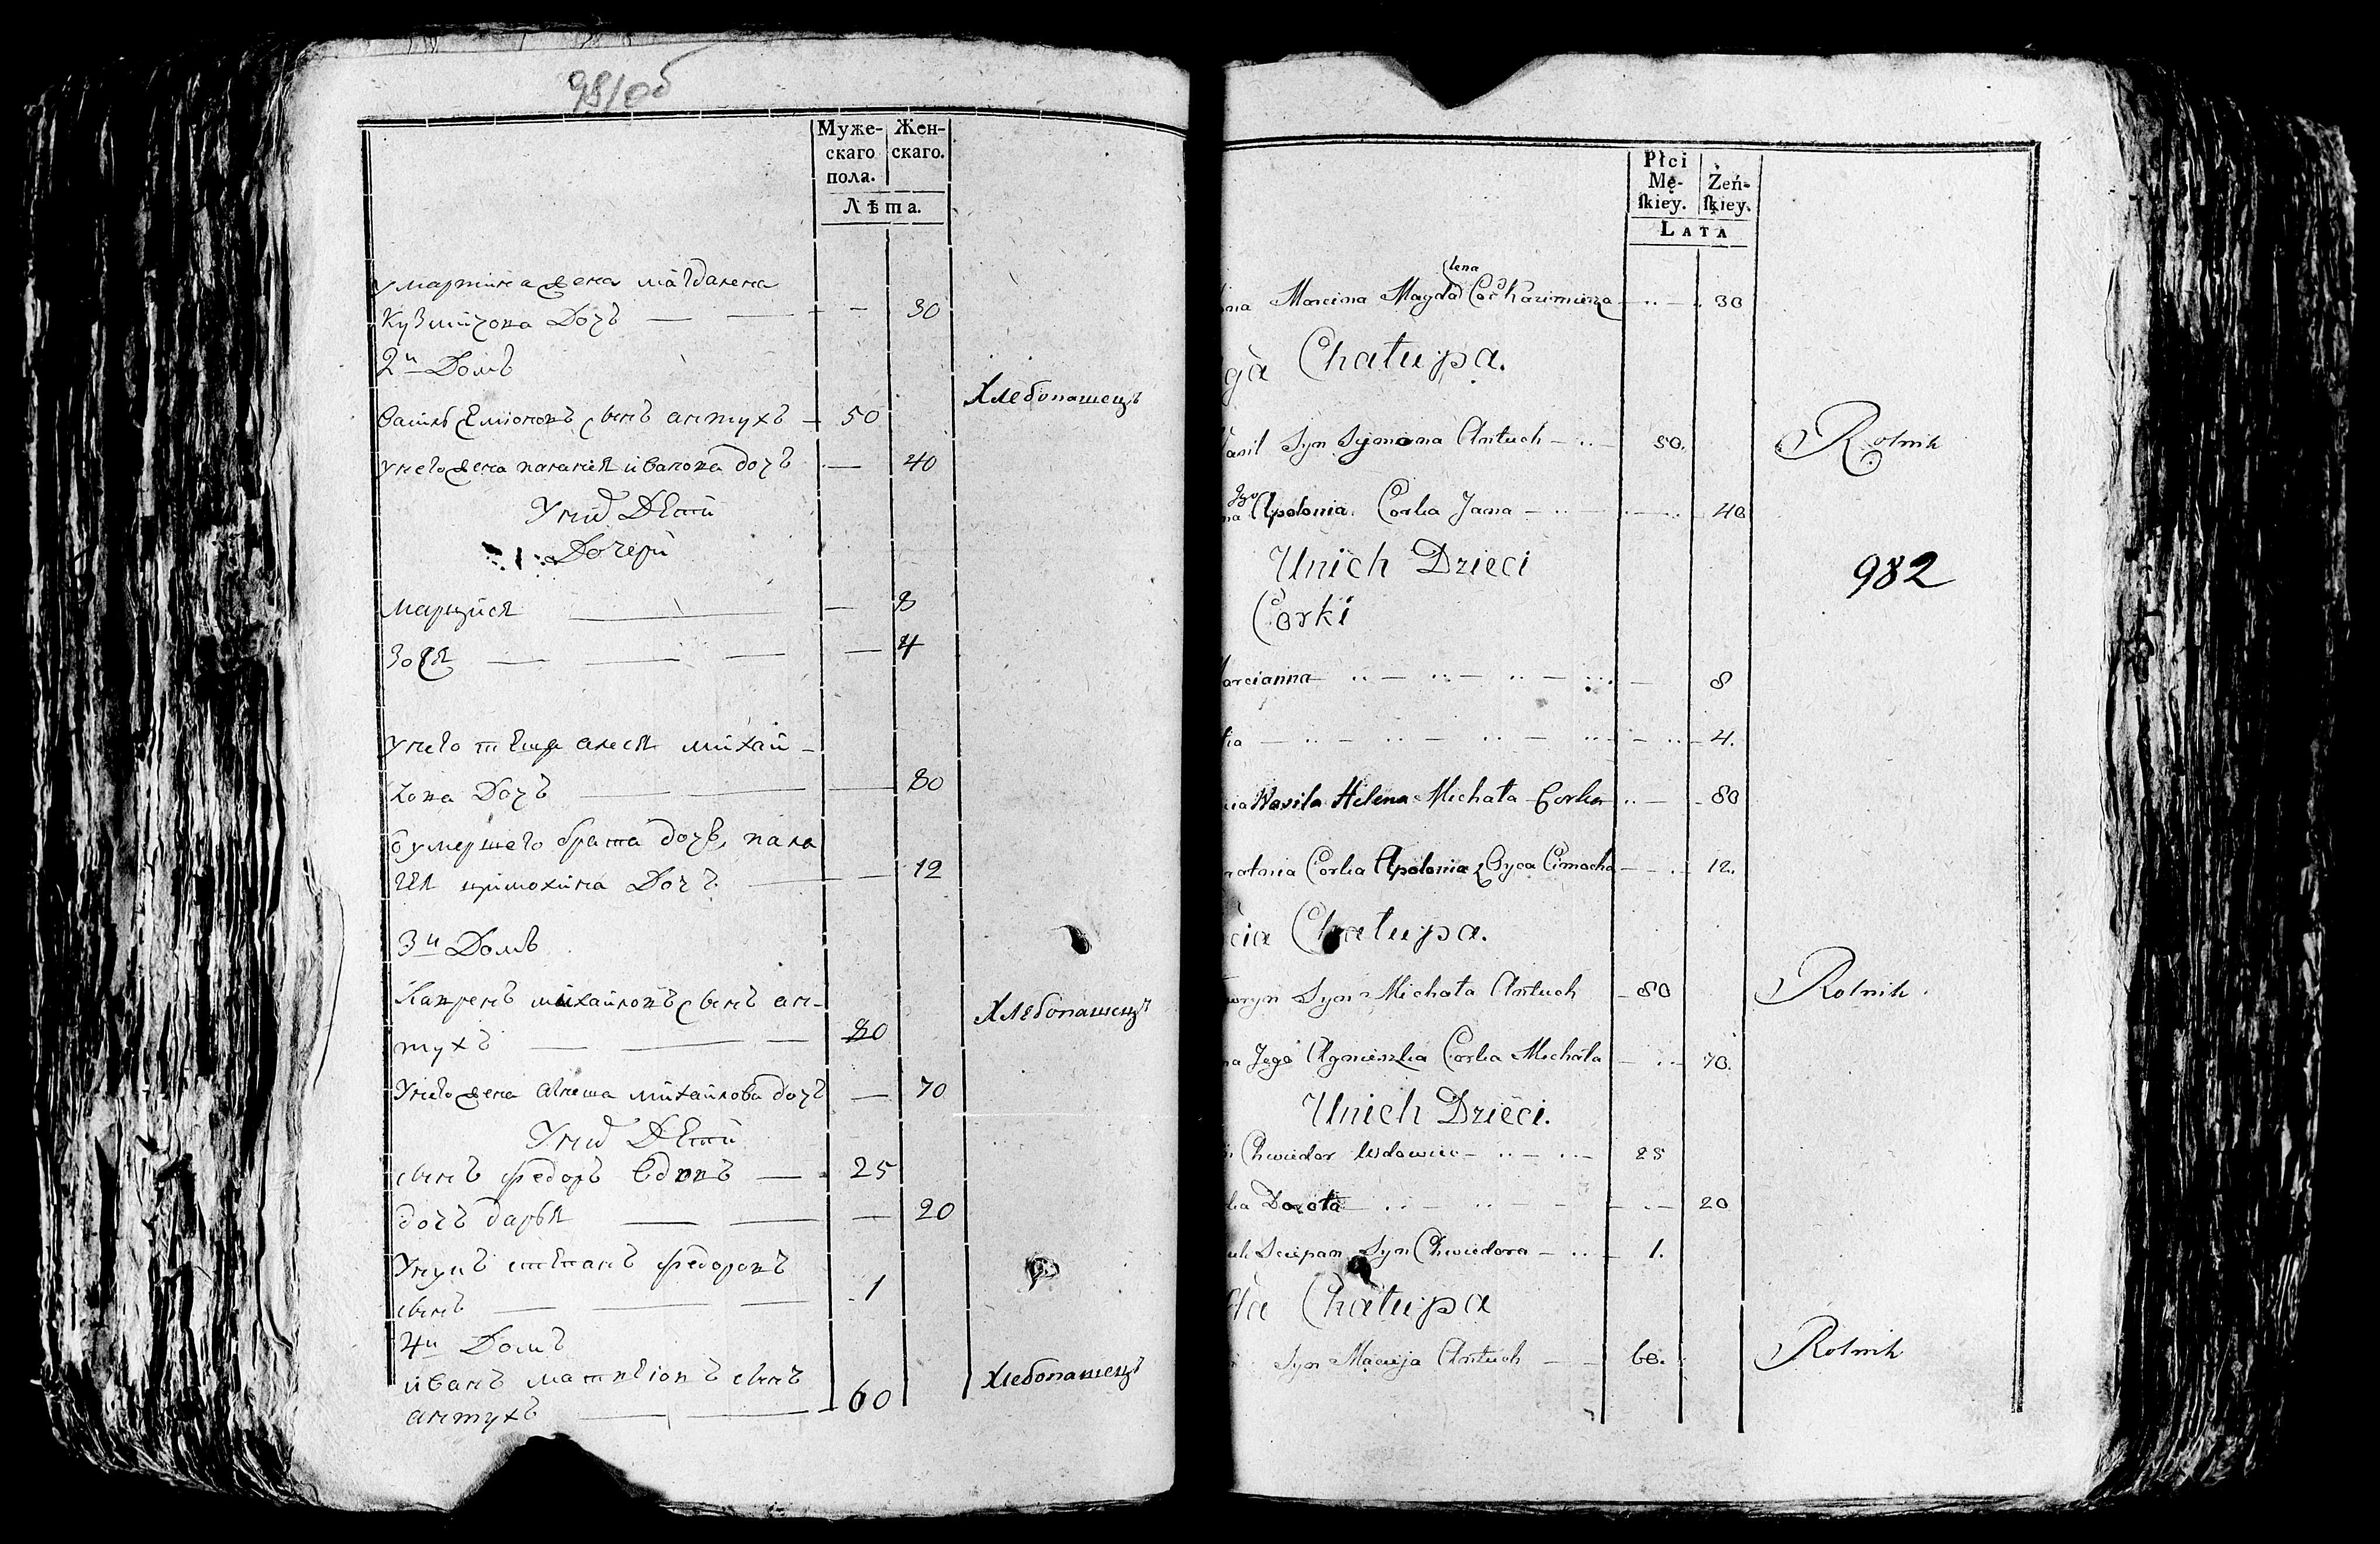 981об
Муже- Жен-
скаго скаго.
пола.
Лѣта.
умартина жена магдалена
Кузмитова Дочъ — — — 30
2й Домъ
василь Семіоновъ сынъ антухъ — 50 Хлебопашецъ
унего жена паланея иванова дочъ — 40
Унихъ Дѣти
Дочери
марцыся — — 8
зося — — — — 4
унего тѣща алеся михай-
лова Дочъ — — — 80
умершего брата дочь, пала
гея цимохина Дочъ — — 12
3й Домъ
Лавренъ михайловъ сынъ ан-
тухъ — — — 80 Хлебопашецъ
Унего жена агнеша михайлова дочъ — 70
Унихъ Дѣти
сынъ федоръ вдовъ — 25
дочъ дарья — — — 20
Унукъ степанъ федоровъ
сынъ — — — 1
4й Домъ
иванъ матвѣіовъ сынъ
антухъ — — 60 Хлебопашецъ
Płci
Mę- Żeń-
skiey. skiey.
LATA
lena
na Marcina Magda Cor Kazimierza — 30
ga Chałupa.
asil Syn Symona Antuch — 50. Rolnik
Jego
na Apolonia Corka Jana — 40
Unich Dzieci
982
Corki
arcianna — 8
ia — 4.
ia Wasila Helena Michała Corka — 80
Corka Apolonia Oyca Cimocha — 12.
cia Chałupa.
wryn Syn Michała Antuch — 80 Rolnik
na Jego Agnieszka Corka Michała — 70.
Unich Dzieci.
Chwiedor Wdowiec — 25
ka Dorota — 20
uk Sciepan Syn Chwiedora — 1.
ta Chałupa
Syn Macieja Antuch — 60. Rolnik